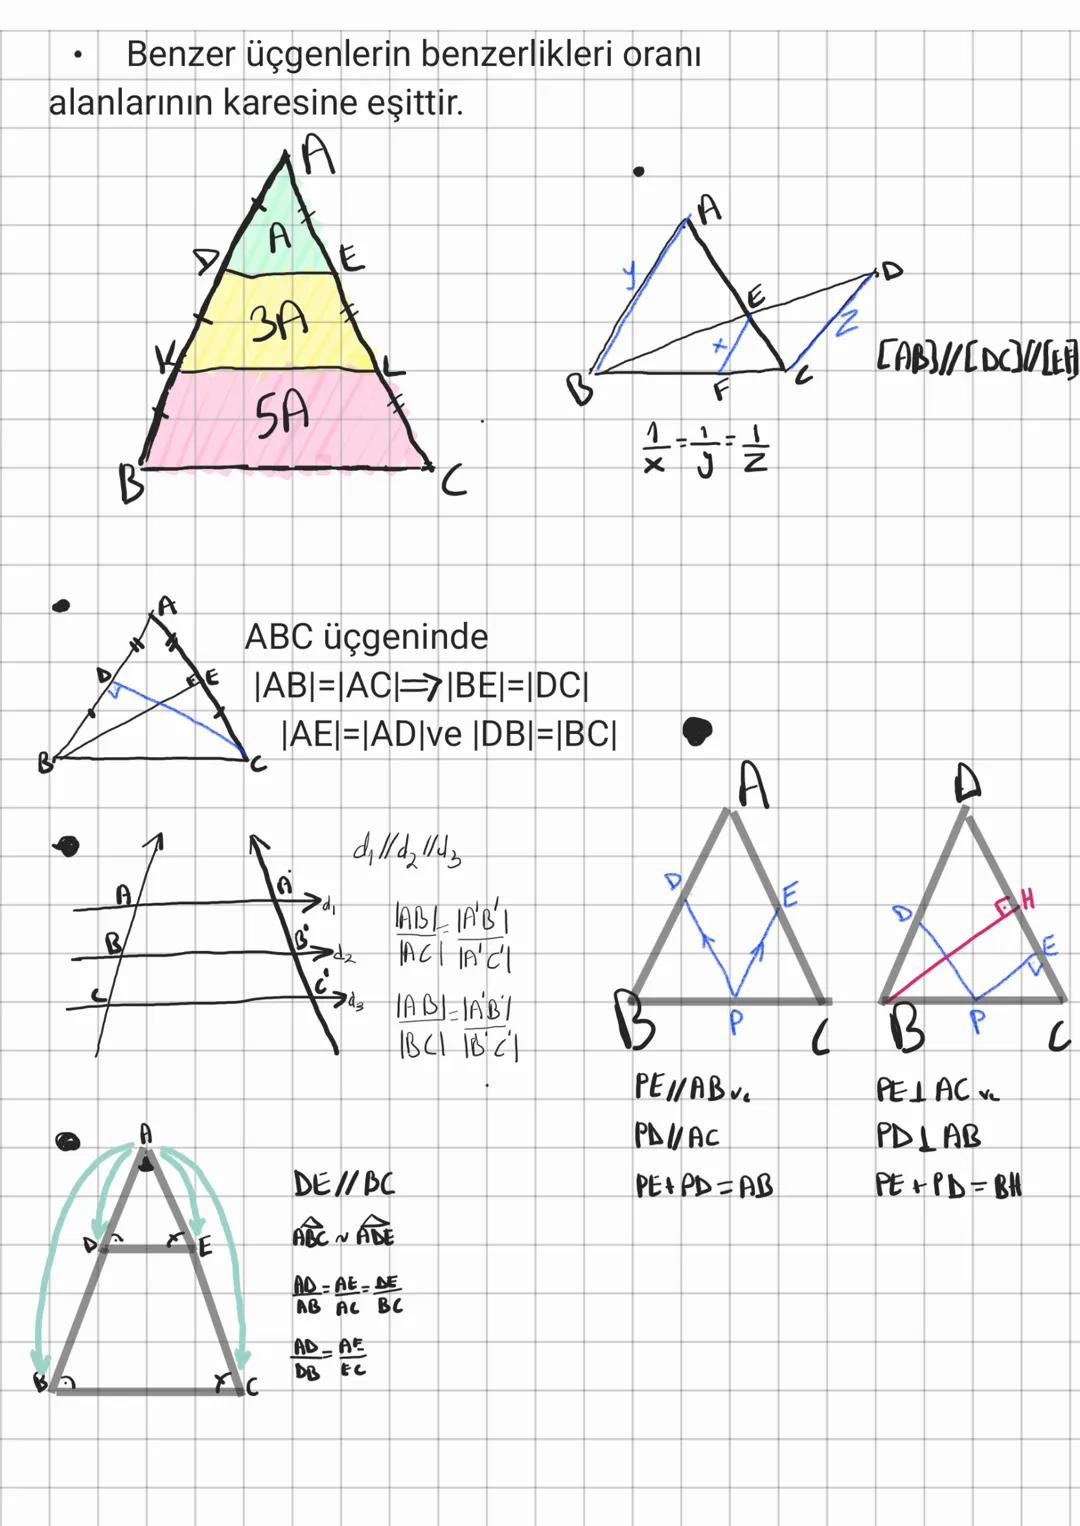 • Benzer üçgenlerin benzerlikleri oranı
alanlarının karesine eşittir.
A
A
D E
3A
K L
5A
B C
•
A
y
D
E
x z
B F C
[AB]//[DC]//[EF]
1/x = 1/y = 1/z
•
A
D E
B C
ABC üçgeninde
|AB|=|AC|⇒|BE|=|DC|
|AE|=|AD|ve |DB|=|BC|
•
A A'
d₁
B B'
d₂
C C'
d₃
d₁//d₂//d₃
|AB|/|AC| = |A'B'|/|A'C'|
|AB|/|BC| = |A'B'|/|B'C'|
•
A
D E
B P C
PE//AB ve
PD//AC
PE+PD=AB
D
H
D E
B P C
PE⊥AC ve
PD⊥AB
PE+PD=BH
•
A
D E
B C
DE//BC
ABC ~ ADE
AD/AB = AE/AC = DE/BC
AD/DB = AE/EC